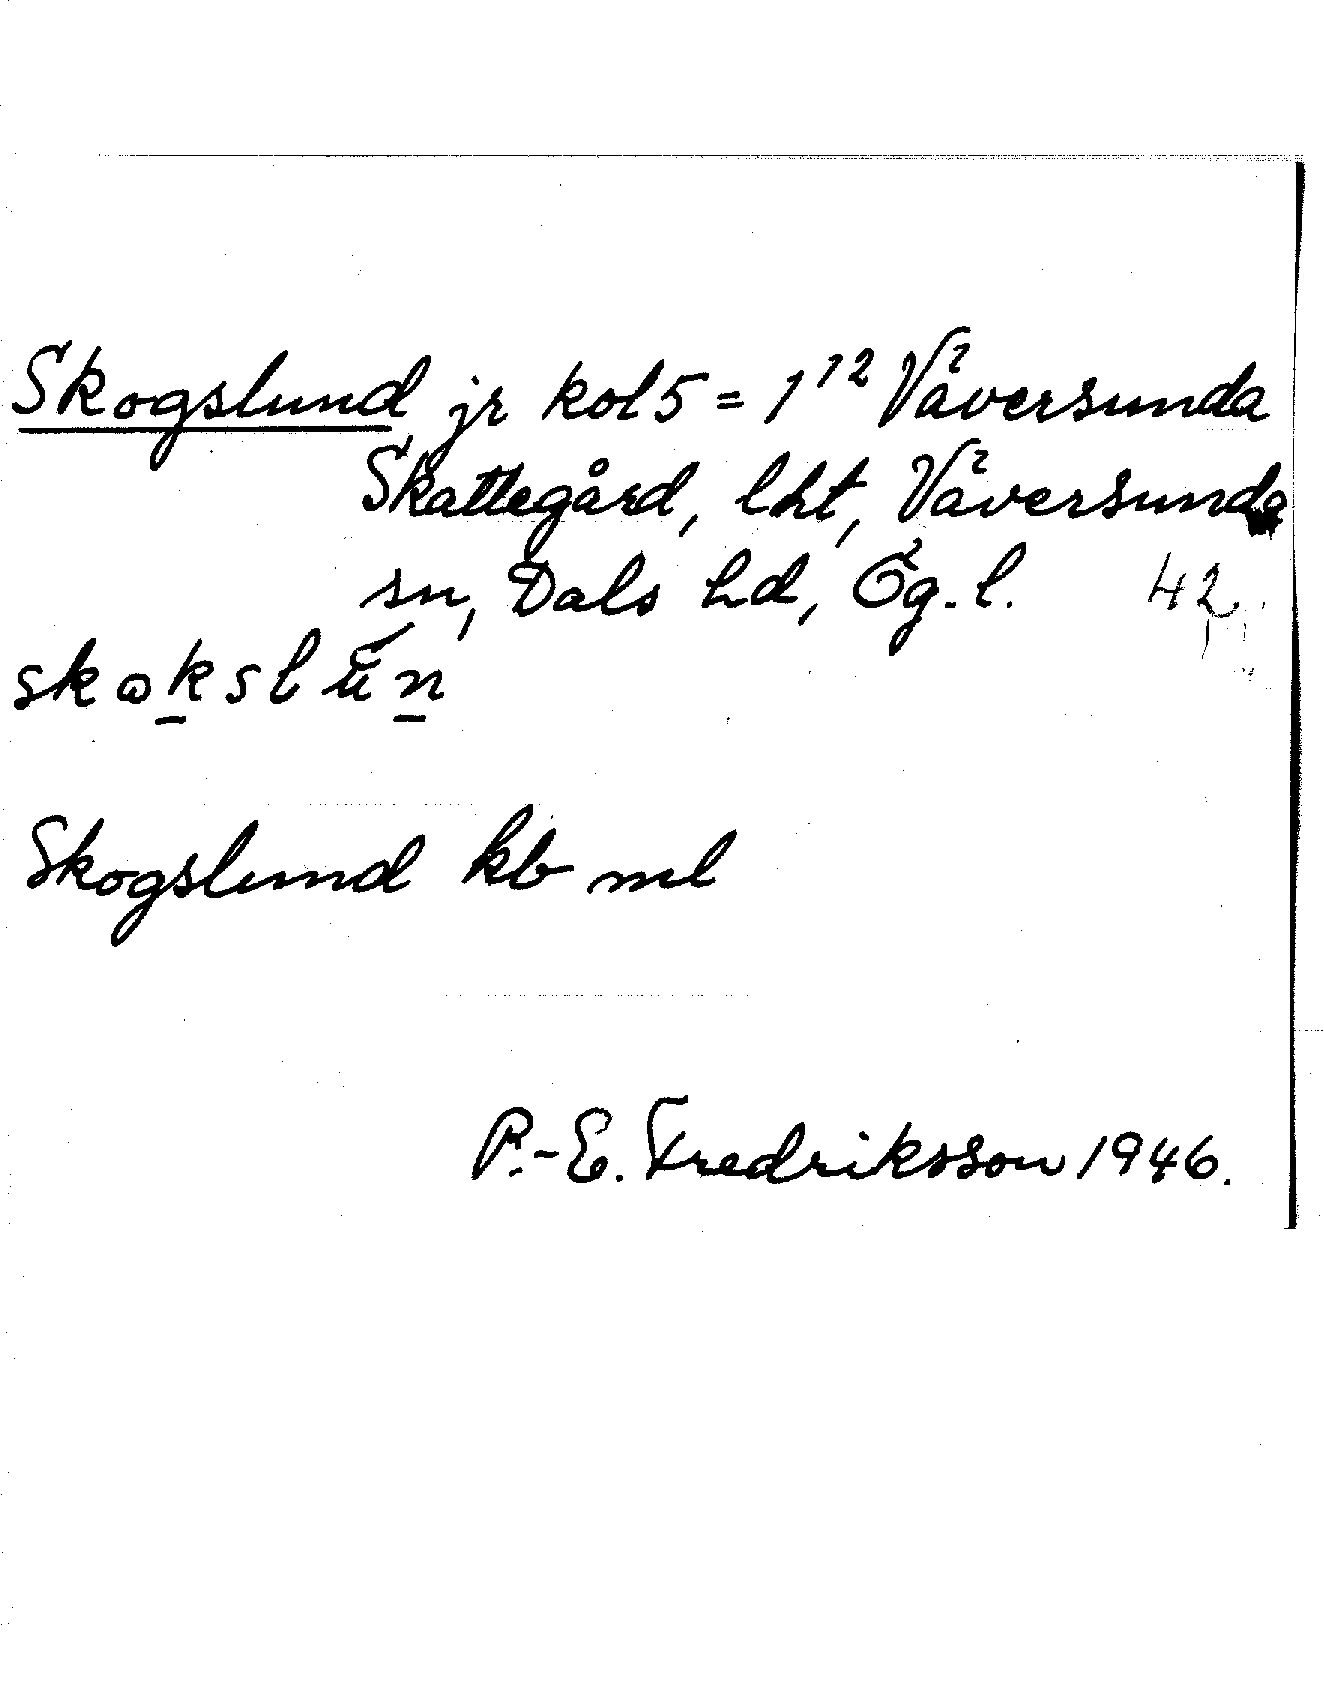 Skogslund jr kol 5 = 1¹² Väversunda
Skattegård, lht, Väversunda
sn, Dals hd, Ög. l. 42
Skogslund kb ml
P.-E. Fredriksson 1946.